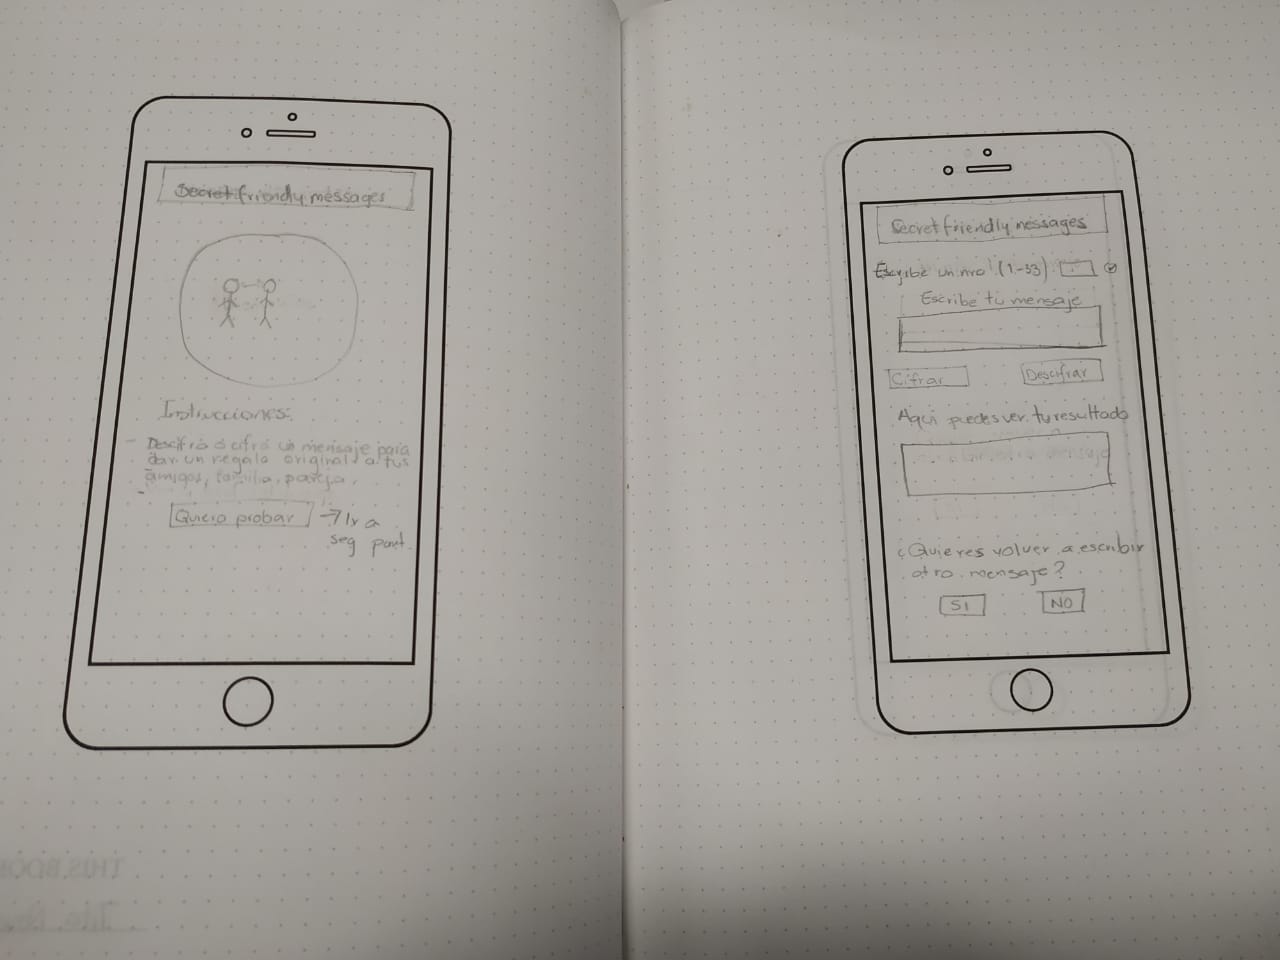 Secret friendly messages
Instrucciones:
- Descifra o cifra un mensaje para
dar un regalo original a tus
amigos, familia, pareja.
Quiero probar → Ir a
seg pant.
Secret friendly messages
Escribe un nro (1-33)
Escribe tu mensaje
Cifrar Descifrar
Aqui puedes ver tu resultado
mensaje
¿Quieres volver a escribir
otro mensaje?
SI NO
THIS BOO